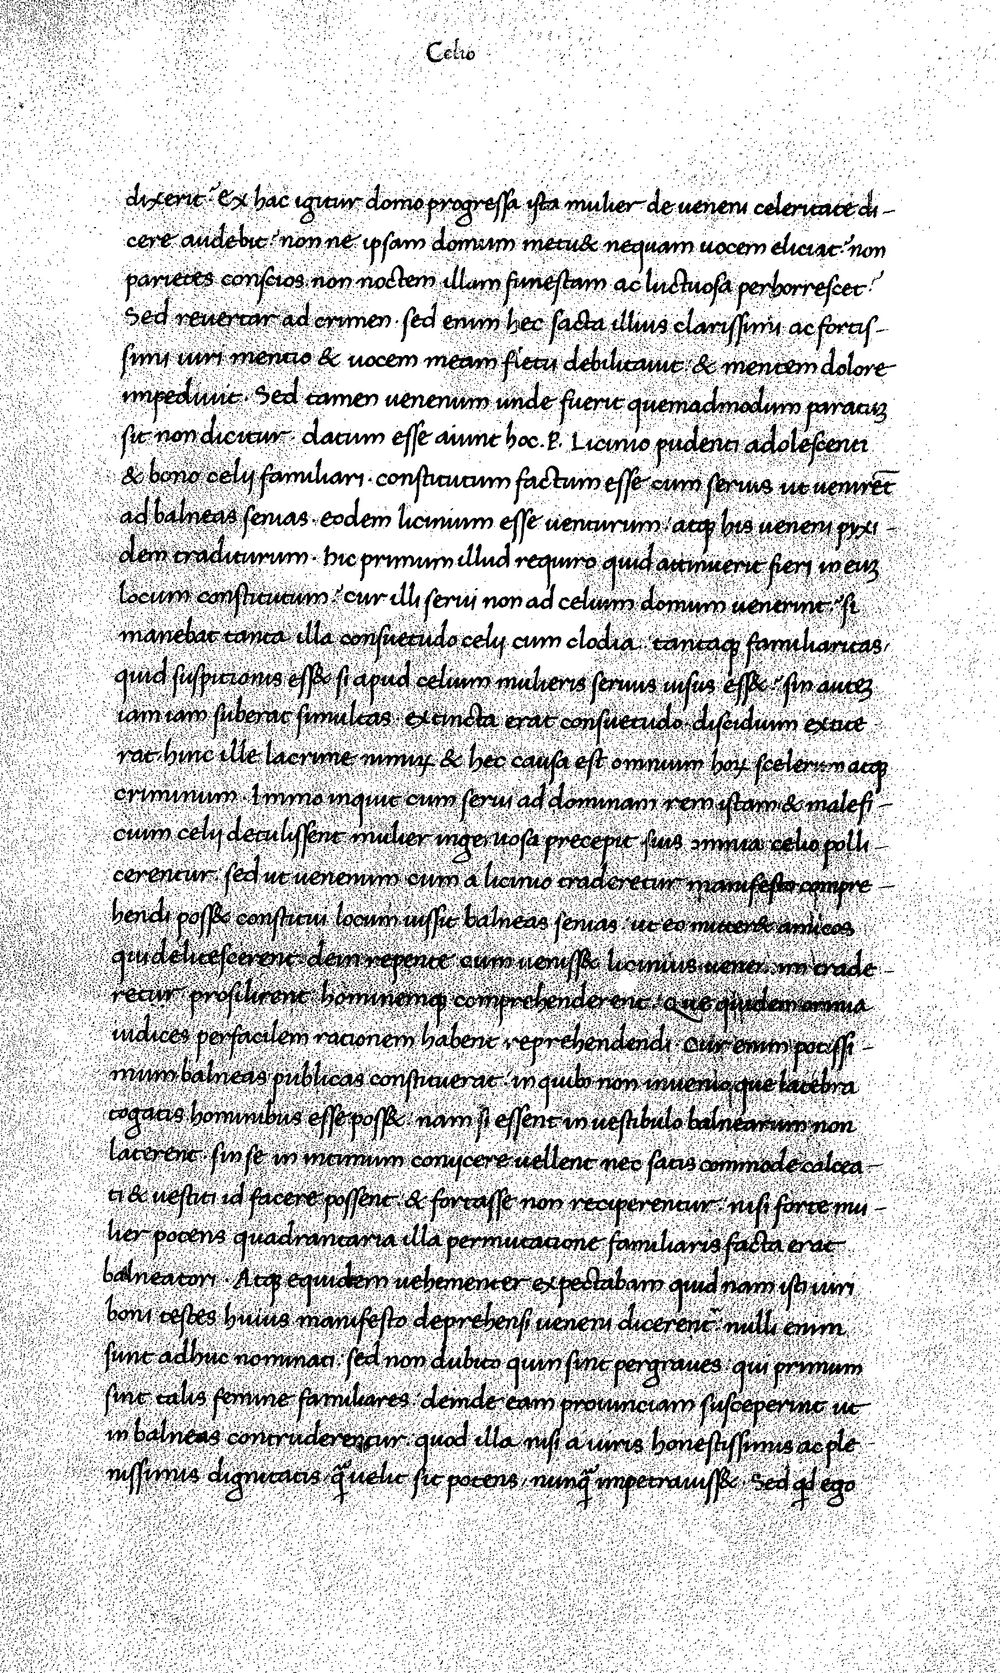 Celio
dixerit? Ex hac igitur domo progressa ista mulier de ueneni celeritate di-
cere audebit? non ne ipsam domum metu& nequam uocem eliciat? non
parietes conscios. non noctem illam funestam ac luctuosa perhorrescet?
Sed reuertar ad crimen. sed enim hec facta illius clarissimi ac fortis-
simi uiri mentio & uocem meam fletu debilitauit. & mentem dolore
impediuit. Sed tamen uenenum unde fuerit quemadmodum paratuz
sit non dicitur. datum esse aiunt hoc .P. Licinio pudenti adolescenti
& bono celij familiari. constitutum factum esse cum seruis ut uenirēt
ad balneas senias. eodem licinium esse uenturum. atqꝫ his ueneni pyxi-
dem traditurum. hic primum illud requiro quid attinuerit fieri in euz
locum constitutum? cur illi serui non ad celium domum uenerint? si
manebat tanta illa consuetudo celij cum clodia. tantaqꝫ familiaritas/
quid suspitionis ess& si apud celium mulieris seruus uisus ess&? sin autez
iam iam suberat simultas. extincta erat consuetudo. discidium extite
rat. hinc ille lacrime nimiꝝ & hec causa est omnium hoꝝ scelerum atqꝫ
criminum. Immo inquit cum serui ad dominam rem istam & malefi-
cium celij detulissent mulier ingeniosa precepit suis omnia celio polli-
cerentur. sed ut uenenum cum a licinio traderetur manifesto compre-
hendi poss& constitui locum iussit balneas senias. ut eo mitter& amicos
qui delitescerent. dein repente cumueniss& licinius uenenum trade-
retur prosilirent hominemqꝫ comprehenderent. Que quidem omnia
iudices perfacilem rationem habent reprehendendi. Cur enim potissi-
mum balneas publicas constituerat. in quibꝰ non inuenio que latebra
togatis hominibus esse poss&. nam si essent in uestibulo balnearum non
laterent. sin se in intimum conijcere uellent nec satis commode calcea-
ti & uestiti id facere possent. & fortasse non reciperentur. nisi forte mu-
lier potens quadrantaria illa permutatione familiaris facta erat
balneatori. Atqꝫ equidem uehementer expectabam quid nam isti uiri
boni testes huius manifesto deprehensi ueneni dicerent. nulli enim
sunt adhuc nominati. sed non dubito quin sint pergraues. qui primum
sint talis femine familiares. deinde eam prouinciam susceperint ut
in balneas contruderentur. quod illa nisi a uiris honestissimis ac ple
nissimis dignitatis. q̄ uelit sit potens, nunq̄ impetrauiss&. Sed qd ego